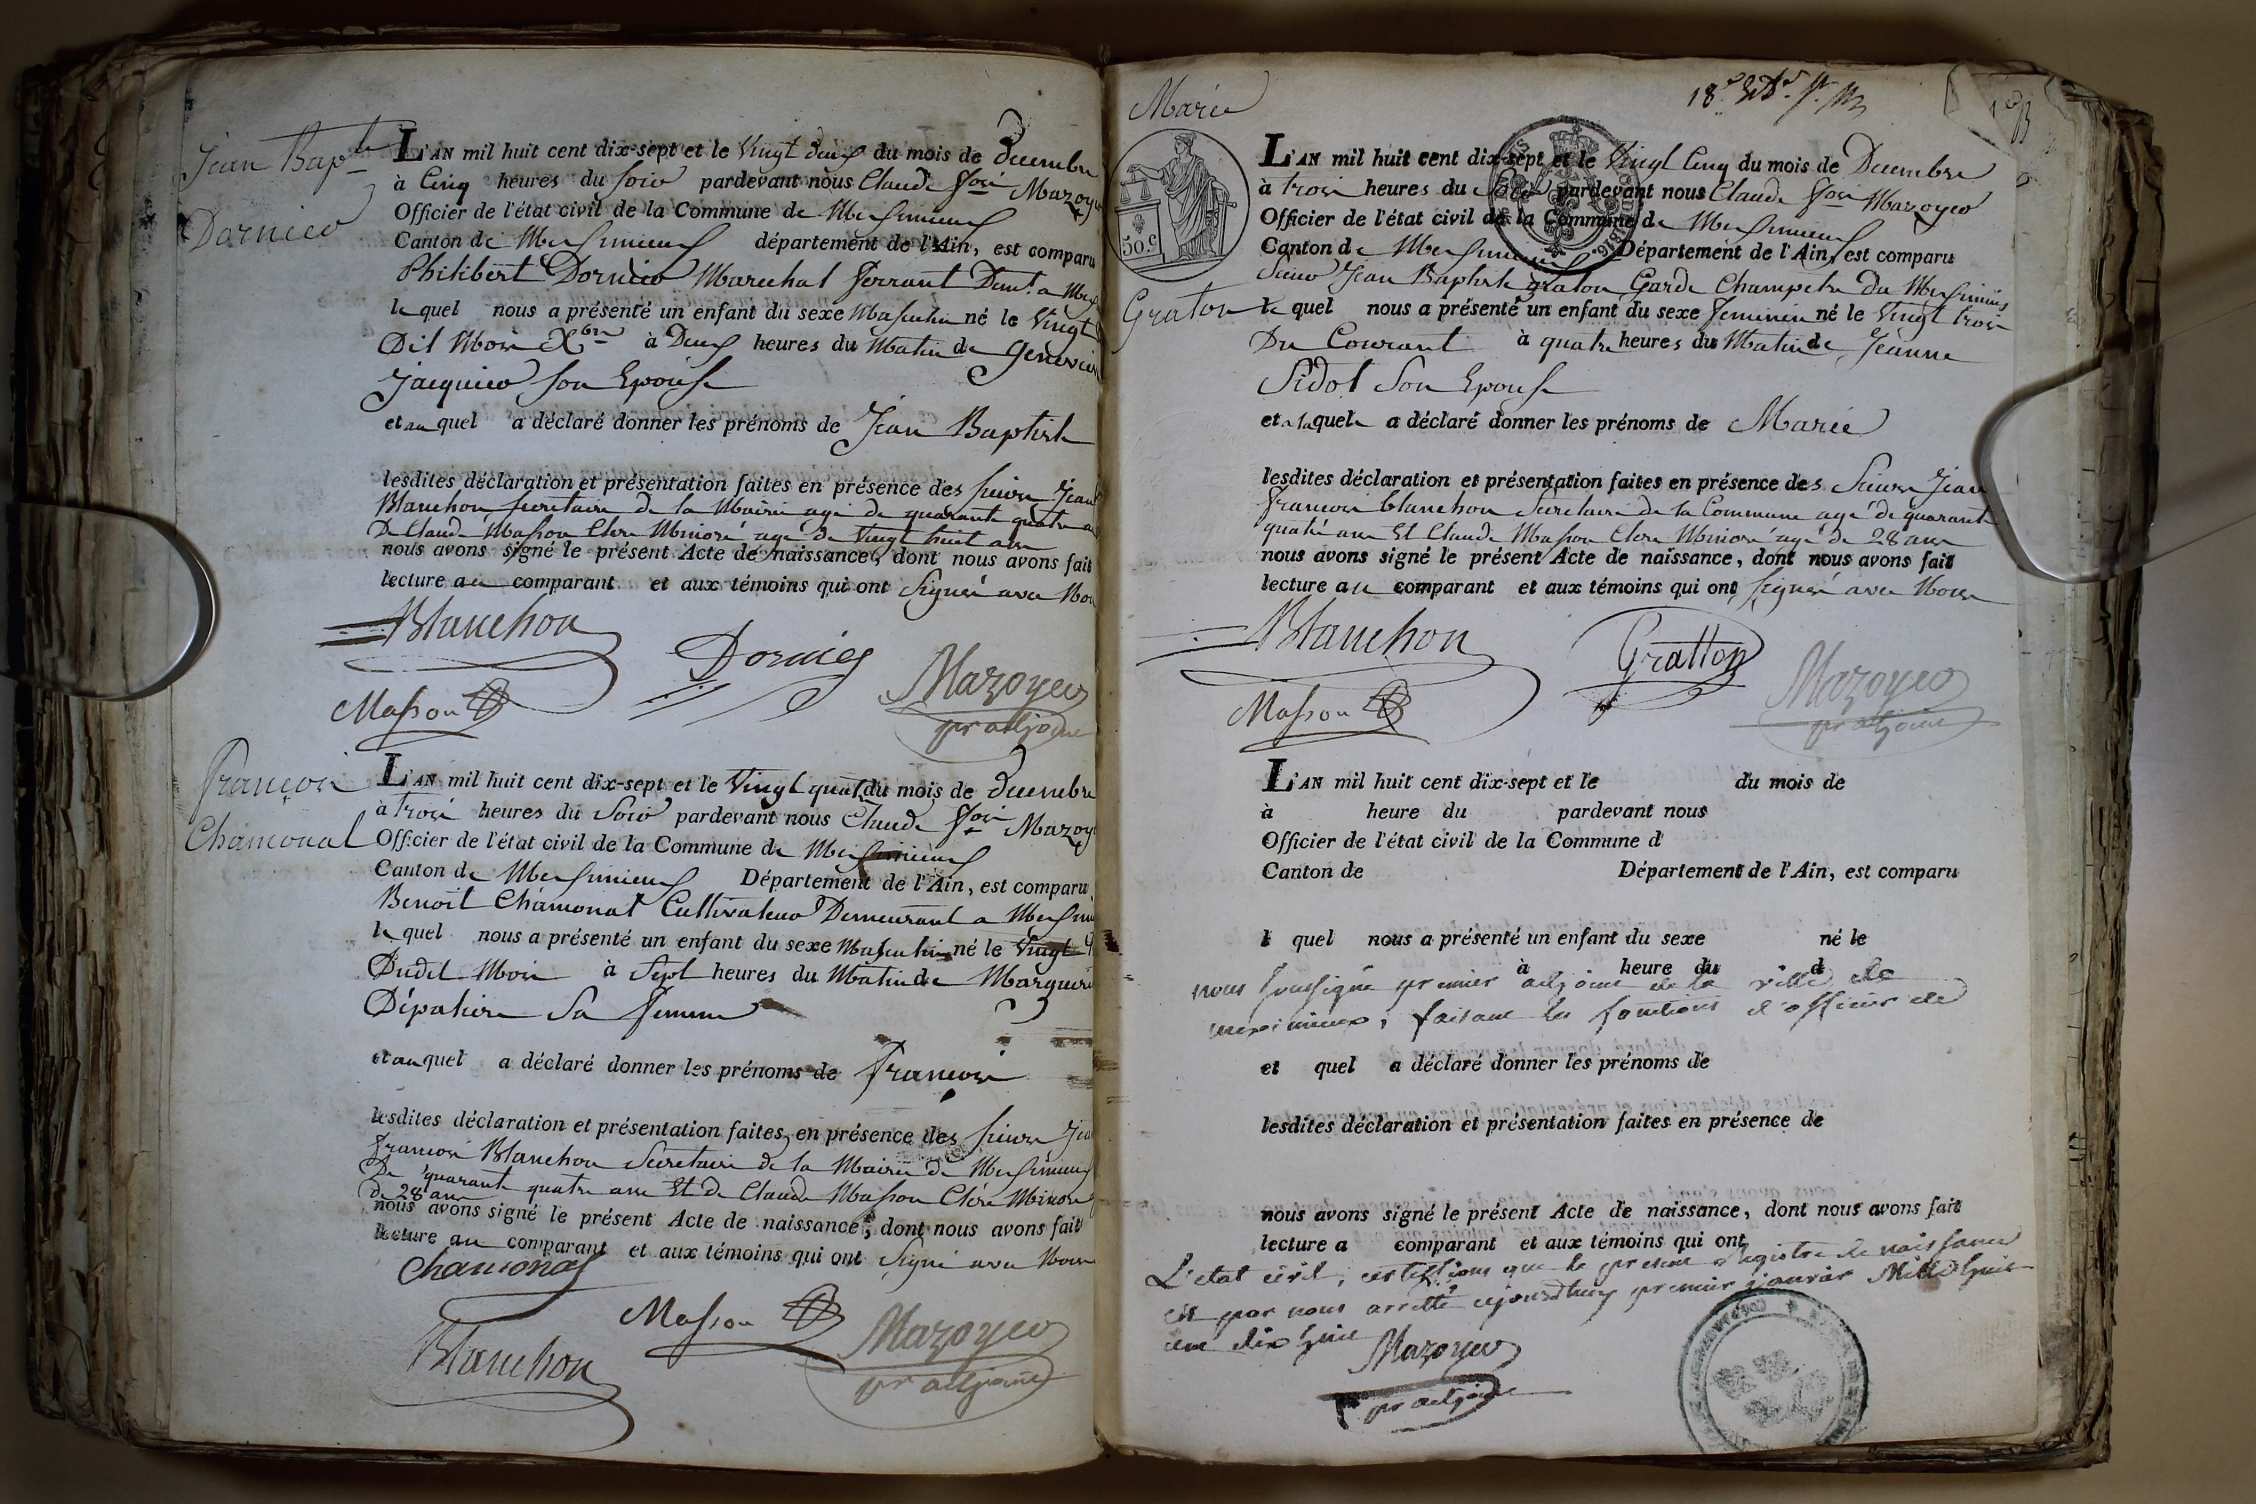 Jean Bap.te
Dornier
L'AN mil huit cent dix-sept et le Vingt deux du mois de Decembre
à Cinq heures du soir pardevant nous Claude Mazoye
Officier de l'état civil de la Commune de Meximieux
Canton de Meximieux département de l'Ain, est comparu
Philibert Dornier Marechal ferrant Demt. a Mex
le quel nous a présenté un enfant du sexe Masculin né le Vingt
Dit Mois Xbre à Deux heures du Matin de Geneviev
Jacquier son Epouse
et au quel a déclaré donner les prénoms de Jean Baptiste
lesdites déclaration et présentation faites en présence des sieurs Jean
Blanchon secretaire de la Mairie agé de quarante quatre an
De Claude Masson Clerc Minoré agé de Vingt huit ans
nous avons signé le présent Acte de naissance, dont nous avons fait
lecture au comparant et aux témoins qui ont Signés avec Nou
Blanchon
Dornier
Masson
Mazoyer
pr adjoint
François
Chamonal
L'AN mil huit cent dix-sept et le Vingt quatre du mois de Decembre
à trois heures du Soir pardevant nous Claude Mazoy
Officier de l'état civil de la Commune de Meximieux
Canton de Meximieux Département de l'Ain, est comparu
Benoît Chamonal Cultivateur Demeurant a Meximi
le quel nous a présenté un enfant du sexe Masculin né le Vingt
Dudit Mois à Sept heures du Matin de Margueri
Dépalière Sa femme
et au quel a déclaré donner les prénoms de François
lesdites déclaration et présentation faites en présence des sieurs Jea
François Blanchon Secretaire de la Mairie de Meximieux
De quarante quatre ans Et de Claude Masson Clerc Minoré
de 28 ans
nous avons signé le présent Acte de naissance, dont nous avons fait
lecture au comparant et aux témoins qui ont Signé avec Nous
Chamonal
Masson
Mazoyer
pr adjoint
Blanchon
Marie
50.c
Graton
L'AN mil huit cent dix-sept et le Vingt Cinq du mois de Decembre
à trois heures du Soir pardevant nous Claude Mazoyer
Officier de l'état civil de la Commune de Meximieux
Canton de Meximieux Département de l'Ain, est comparu
Sieur Jean Baptiste graton Garde Champetre de Meximieux
le quel nous a présenté un enfant du sexe feminin né le Vingt trois
Du Courant à quatre heures du Matin de Jeanne
Sidot Son Epouse
et a laquele a déclaré donner les prénoms de Marie
lesdites déclaration et présentation faites en présence des Sieurs Jean
françois blanchon Secretaire de la Commune agé de quarante
quatre ans Et Claude Masson Clerc Minoré agé de 28 ans
nous avons signé le présent Acte de naissance, dont nous avons fait
lecture au comparant et aux témoins qui ont signés avec Nous
Blanchon
Gratton
Masson
Mazoyer
pr adjoint
L'AN mil huit cent dix-sept et le du mois de
à heure du pardevant nous
Officier de l'état civil de la Commune d
Canton de Département de l'Ain, est comparu
l quel nous a présenté un enfant du sexe né le
à heure du d
nous soussigné premier adjoint de la ville de
meximieux, faisant les fonctions d'officier de
et quel a déclaré donner les prénoms de
lesdites déclaration et présentation faites en présence de
nous avons signé le présent Acte de naissance, dont nous avons fait
lecture a comparant et aux témoins qui ont
L'etat civil, certifions que le present Registre de naissance
est par nous arretté aujourdhuy premier janvier Mille huit
cent dix huit
Mazoyer
pr adjoint